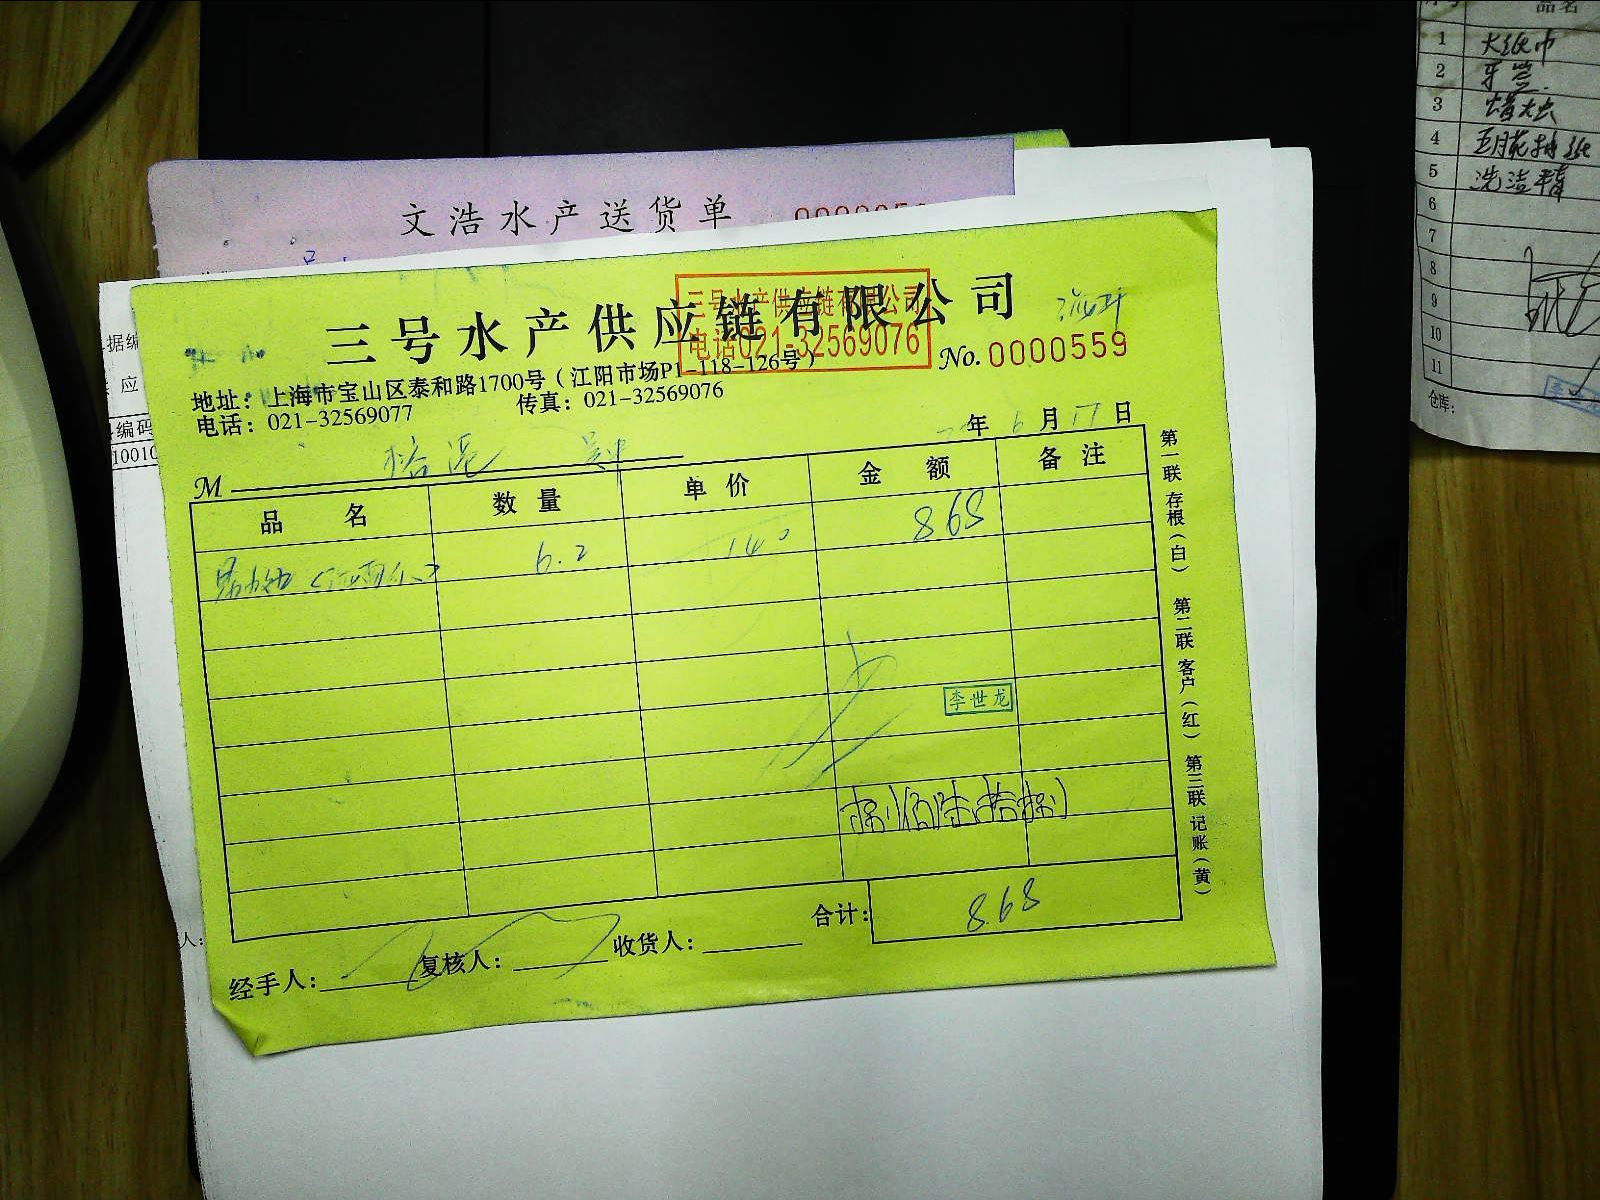 文浩水产送货单
三号水产供应链有限公司
三号水产供应链有限公司
电话021-32569076
No. 0000559
地址：上海市宝山区泰和路1700号（江阳市场P1-118-126号）
电话：021-32569077 传真：021-32569076
年 6 月 17 日
M
品 名 数 量 单 价 金 额 备 注
6.2 140 868
李世龙
捌佰陆拾捌
合计： 868
经手人： 复核人： 收货人：
第一联 存根（白） 第二联 客户（红） 第三联 记账（黄）
据编
应
编码
10010
人：
品名
1 大纸巾
2 牙签
3
4 抽纸
5 洗洁精
6
7
8
9
10
11
仓库：